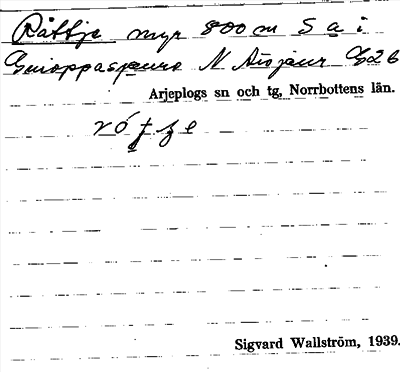 Råttje myr 800 m S a i
Guioppaspeura N Aisjaur E26
Arjeplogs sn och tg, Norrbottens län.
Sigvard Wallström, 1939.